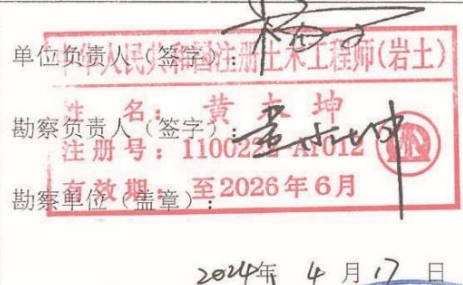 单位负责人（签字）：
中华人民共和国注册土木工程师(岩土)
姓 名： 黄 坤
勘察负责人（签字）：
注册号： 1100222-AY012
有效期： 至2026年6月
勘察单位（盖章）：
2024年 4 月 17 日